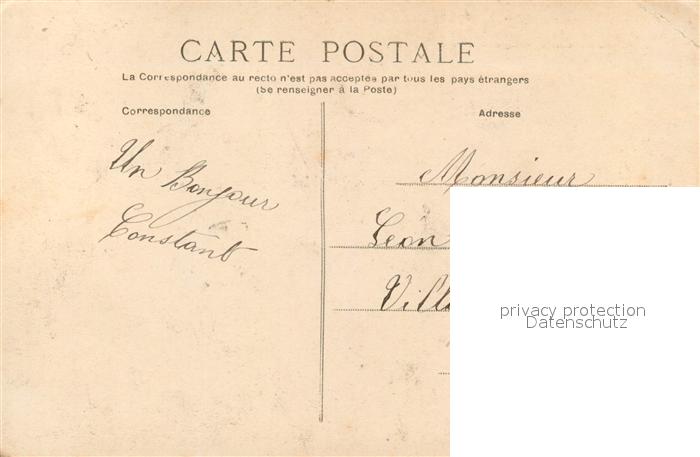 CARTE POSTALE
La Correspondance au recto n'est pas acceptée par tous les pays étrangers
(Se renseigner à la Poste)
Correspondance
Adresse
Un Bonjour
Constant
Monsieur
Leon
Vill
privacy protection
Datenschutz